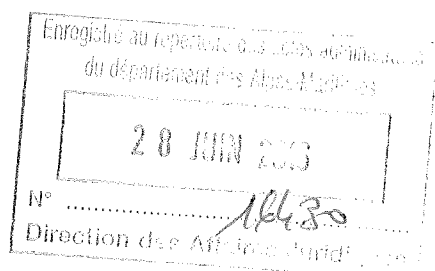 Enregistré au répertoire des actes administratifs
du département des Alpes-Maritimes
28 JUIN
N° 16430
Direction des Affaires Juridiques